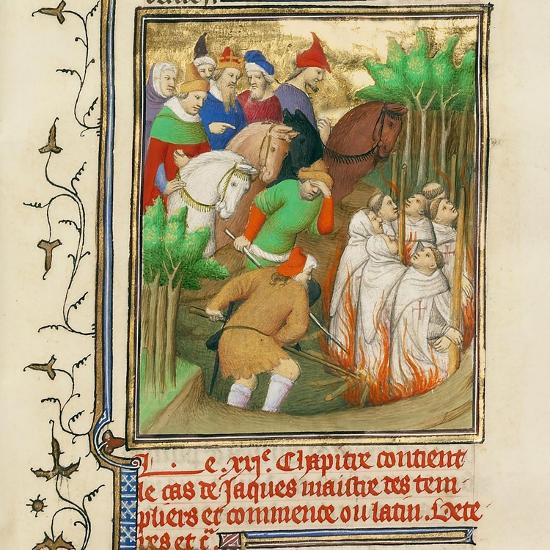 .e. xxi^e. Chapitre contient
le cas de Jaques maistre des tem
pliers et commence ou latin. Vete
res et c^a.